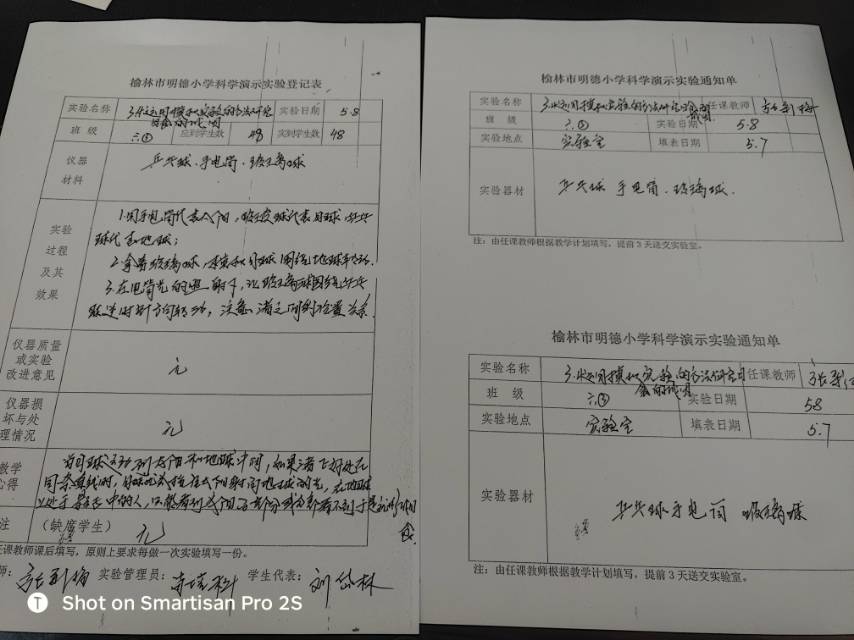 榆林市明德小学科学演示实验登记表
实验名称 3.8运用模拟实验的方法研究日食的成因 实验日期 5 8
班 级 六① 应到学生数 48 实到学生数 48
仪器材料 乒乓球、手电筒、玻璃球
实验过程及其效果
1.用手电筒代表太阳,玻璃球代表月球,乒乓
球代表地球;
2.拿着玻璃球,模拟月球围绕地球转动.
3.在电筒光的照射下,让玻璃球围绕乒乓
球逆时针方向转动,注意三者之间的位置关系.
仪器质量或实验改进意见 无
仪器损坏与处理情况 无
教学心得
当月球运动到太阳和地球中间,如果三者正好处在
同一条直线时,月球就会挡住太阳射向地球的光,在地球
上处于影子中的人,只能看到太阳的一部分或全部看不到于是就发生日食.
注 (缺席学生) 无
任课教师课后填写,原则上要求每做一次实验填写一份。
师: 实验管理员: 学生代表:
榆林市明德小学科学演示实验通知单
实验名称 任课教师
班 级 六① 实验日期 5.8
实验地点 实验室 填表日期 5.7
实验器材 乒乓球 手电筒、玻璃球.
注:由任课教师根据教学计划填写,提前3天送交实验室。
榆林市明德小学科学演示实验通知单
实验名称 任课教师
班 级 实验日期 58
实验地点 实验室 填表日期 5.7
实验器材 乒乓球 手电筒 玻璃球
注:由任课教师根据教学计划填写,提前3天送交实验室。
Shot on Smartisan Pro 2S